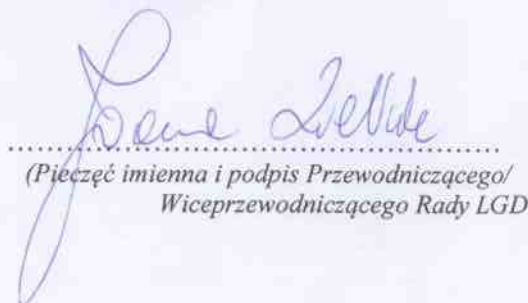 Joanna
(Pieczęć imienna i podpis Przewodniczącego/
Wiceprzewodniczącego Rady LGD